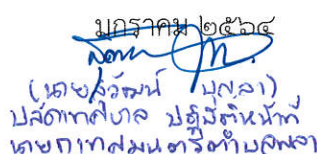 มกราคม ๒๕๖๔
(นายสุวัฒน์ บุญลา)
ปลัดเทศบาล ปฏิบัติหน้าที่
นายกเทศมนตรีตำบลพลา